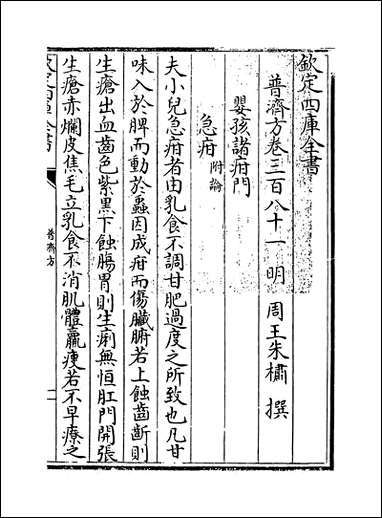 欽定四庫全書
普濟方卷三百八十一　明　周王朱橚　撰
嬰孩諸疳門
急疳附論
夫小兒急疳者由乳食不調甘肥過度之所致也凡甘
味入於脾而動於蟲因成疳而傷臟腑若上蝕齒齗則
生瘡出血齒色紫黑下蝕腸胃則生痢無恒肛門開張
生瘡赤爛皮焦毛立乳食不消肌體羸瘦若不早療之
欽定四庫全書
普濟方